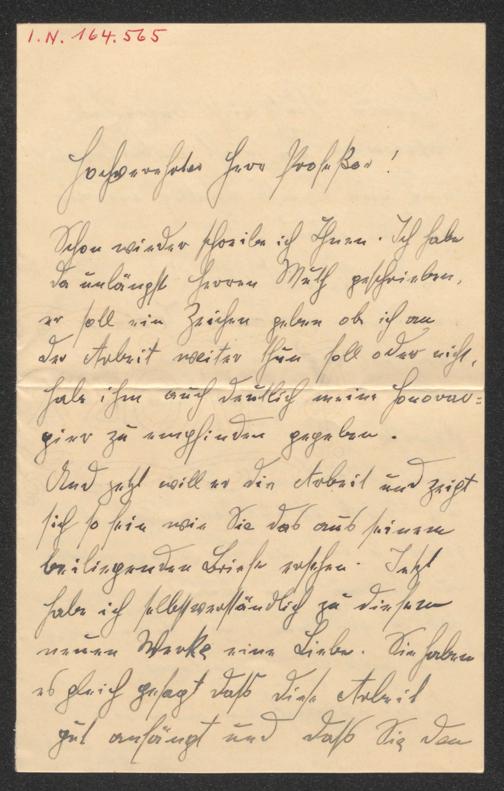 I.N. 164.565
Hochverehrter Herr Profeßor!
Schon wieder schreibe ich Ihnen. Ich habe
da unlängst Herren Muth geschrieben,
er soll ein Zeichen geben ob ich an
der Arbeit weiter thun soll oder nicht,
habe ihm auch deutlich meine Honorar=
gier zu empfinden gegeben.
Und jetzt will er die Arbeit und zeigt
sich so fein wie Sie das aus seinem
beiliegenden Briefe ersehen. Jetzt
habe ich selbstverständlich zu diesem
neuen Werke eine Liebe. Sie haben
es gleich gesagt daß diese Arbeit
gut anfängt und daß Sie den